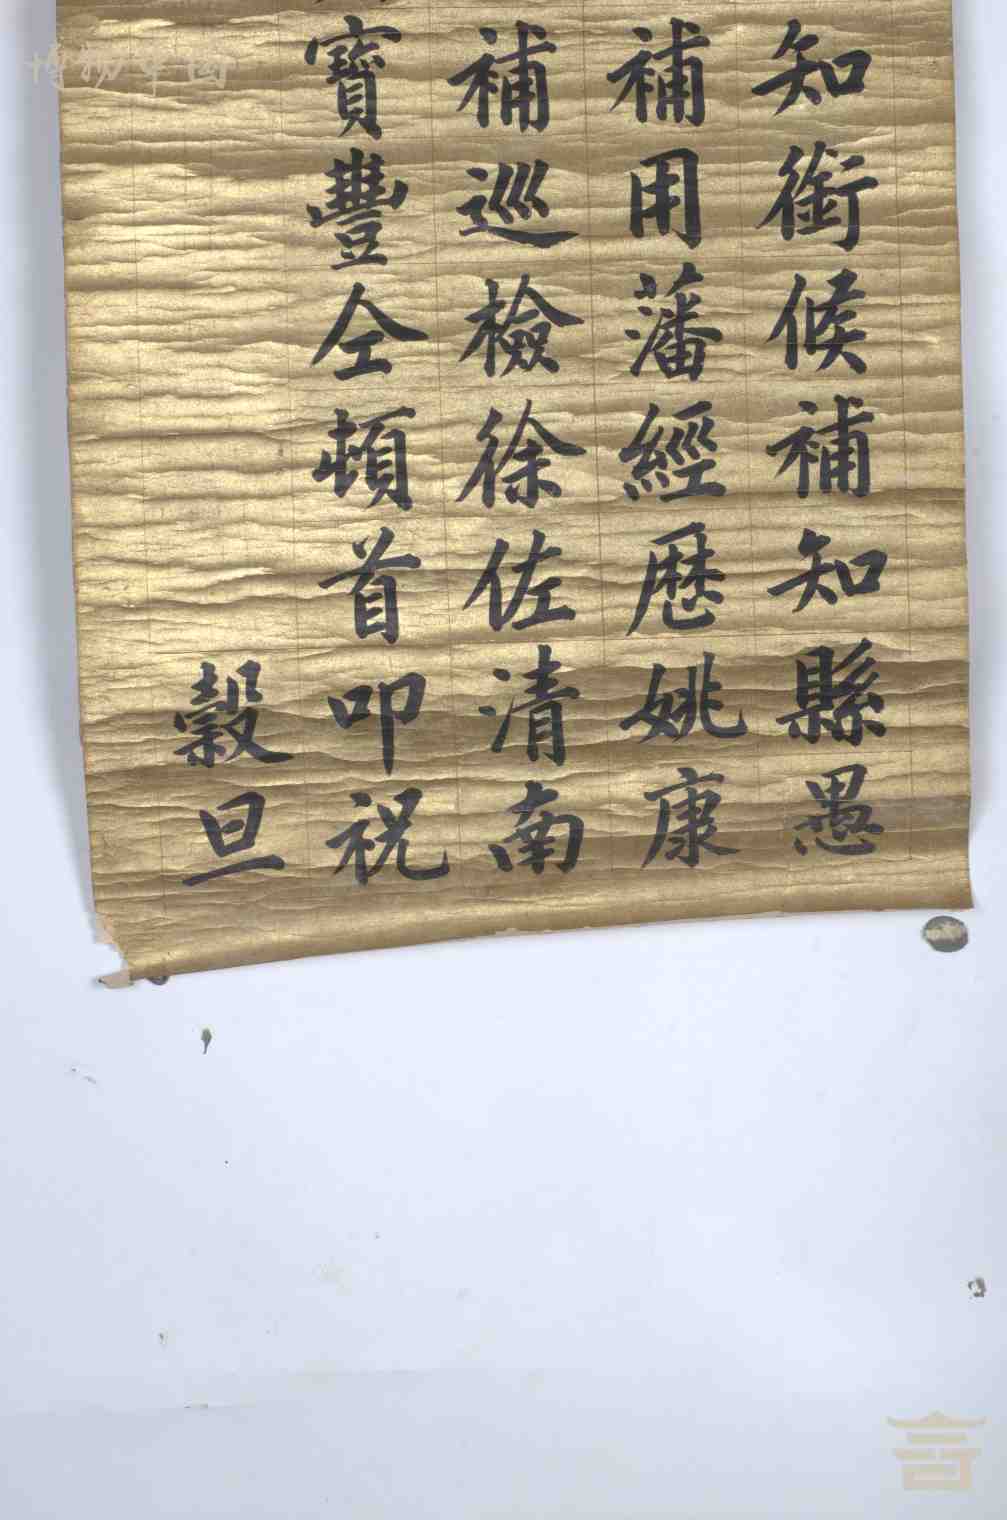 知銜候補知縣愚
補用藩經歷姚康
補巡檢徐佐清南
寶豐仝頓首叩祝
穀旦
博物中国